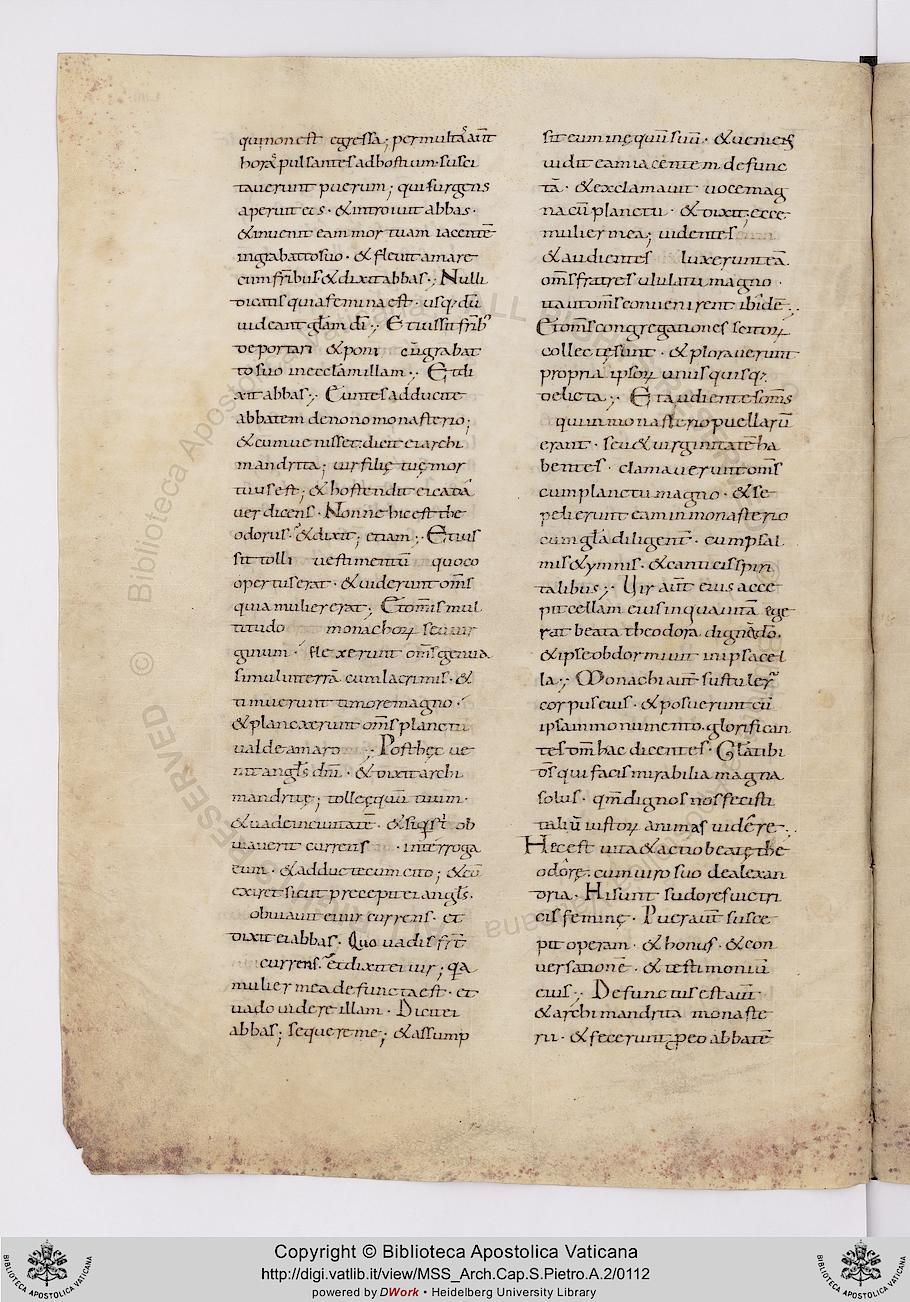 qui non est egressa; per multa aut
hora pulsantes ad hostium. susci
tauerunt puerum; qui surgens
aperuit eis · & introiuit abbas ·
& inuenit eam mortuam iacentē
in grabatto suo · & fleuit amare
cum frībus & dixit abbas ·; Nulli
dicatis quia femina est · usq; dū
uideant glām dī ·; Et iussit frīb'
deportari & poni cū grabat
to suo in ecclām illam ·; Et di
xit abbas ·; Euntes adducite
abbatem de nono monasterio;
& cum uenisset. dicit ei archi
mandrita; uir filię tuę mor
tuus est; & hostendit ei cada
uer dicens · Nonne hic est the
odorus · & dixit; etiam ·; Et ius
sit tolli uestimentū quoco
opertus erat · & uiderunt om̄s
quia mulier erat; Et om̄is mul
titudo monachoꝝ seu uir
ginum · flexerunt om̄s genua
simul in terrā cum lacrimis · &
timuerunt timore magno ·
& planxerunt om̄s planctu
ualde amaro ·; Post hęc ue
nit angl̄s dn̄i · & dixit archi
mandritę; tolle ęquū tuum ·
& uade in ciuitatē · & siq̇s t̄ ob
uiauerit currens · interroga
eum · & adduc tecum cito; & cū
exiret sicut precepit ei angl̄s ·
obuiauit ei uir currens · et
dixit ei abbas · Quo uadis frt̄
currens · et dixit ei uir; qa
mulier mea defuncta est · et
uado uidere illam · Dicit ei
abbas; sequere me; & assump
sit eum in ęquū suū · & ueniens
uidit eam iacentem defunc
tā · & exclamauit uoce mag
na cū planctu · & dixit; ecce
mulier mea; uidentes
& audientes luxerunt eā
om̄s fratres ululatu magno ·
ita ut om̄s conuenirent ibidē ·;
Et om̄s congregationes scitoꝝ
collectę sunt · & plorauerunt
propria ipsoꝝ unusquisq;
delicta ·; Et audientes om̄s
qui in monasterio puellarū
erant · seu & uirginitatē ha
bentes · clamauerunt om̄s
cum planctu magno · & se
pelierunt eam in monasterio
cum glā diligent̄ · cum psal
mis & ymnis · & canticis spiri
talibus ·; Uir aut̄ eius acce
pit cellam eius in qua uitā ege
rat beata theodora. dignē dō.
& ipse obdormiuit in ipsa cel
la ·; Monachi aut̄ sustuler̄
corpus eius · & posuerunt cū
ipsa in monumento. glorifican
tes om̄ hac dicentes · Glā tibi
ds̄ qui facis mirabilia magna
solus · qm̄ dignos nos fecisti
taliū iustoꝝ animas uidēre ·;
Hęc est uita & actio beatę the
odorę. cum uiro suo de alexan
dria · Hi sunt sudores uictri
cis feminę · Puer aut̄ susce
pit operam · & honus · & con
uersationē · & testimoniū
eius ·; Defunctus est aut̄
& archimandrita monaste
rii · & fecerunt p eo abbatē
Copyright © Biblioteca Apostolica Vaticana
http://digi.vatlib.it/view/MSS_Arch.Cap.S.Pietro.A.2/0112
powered by DWork • Heidelberg University Library